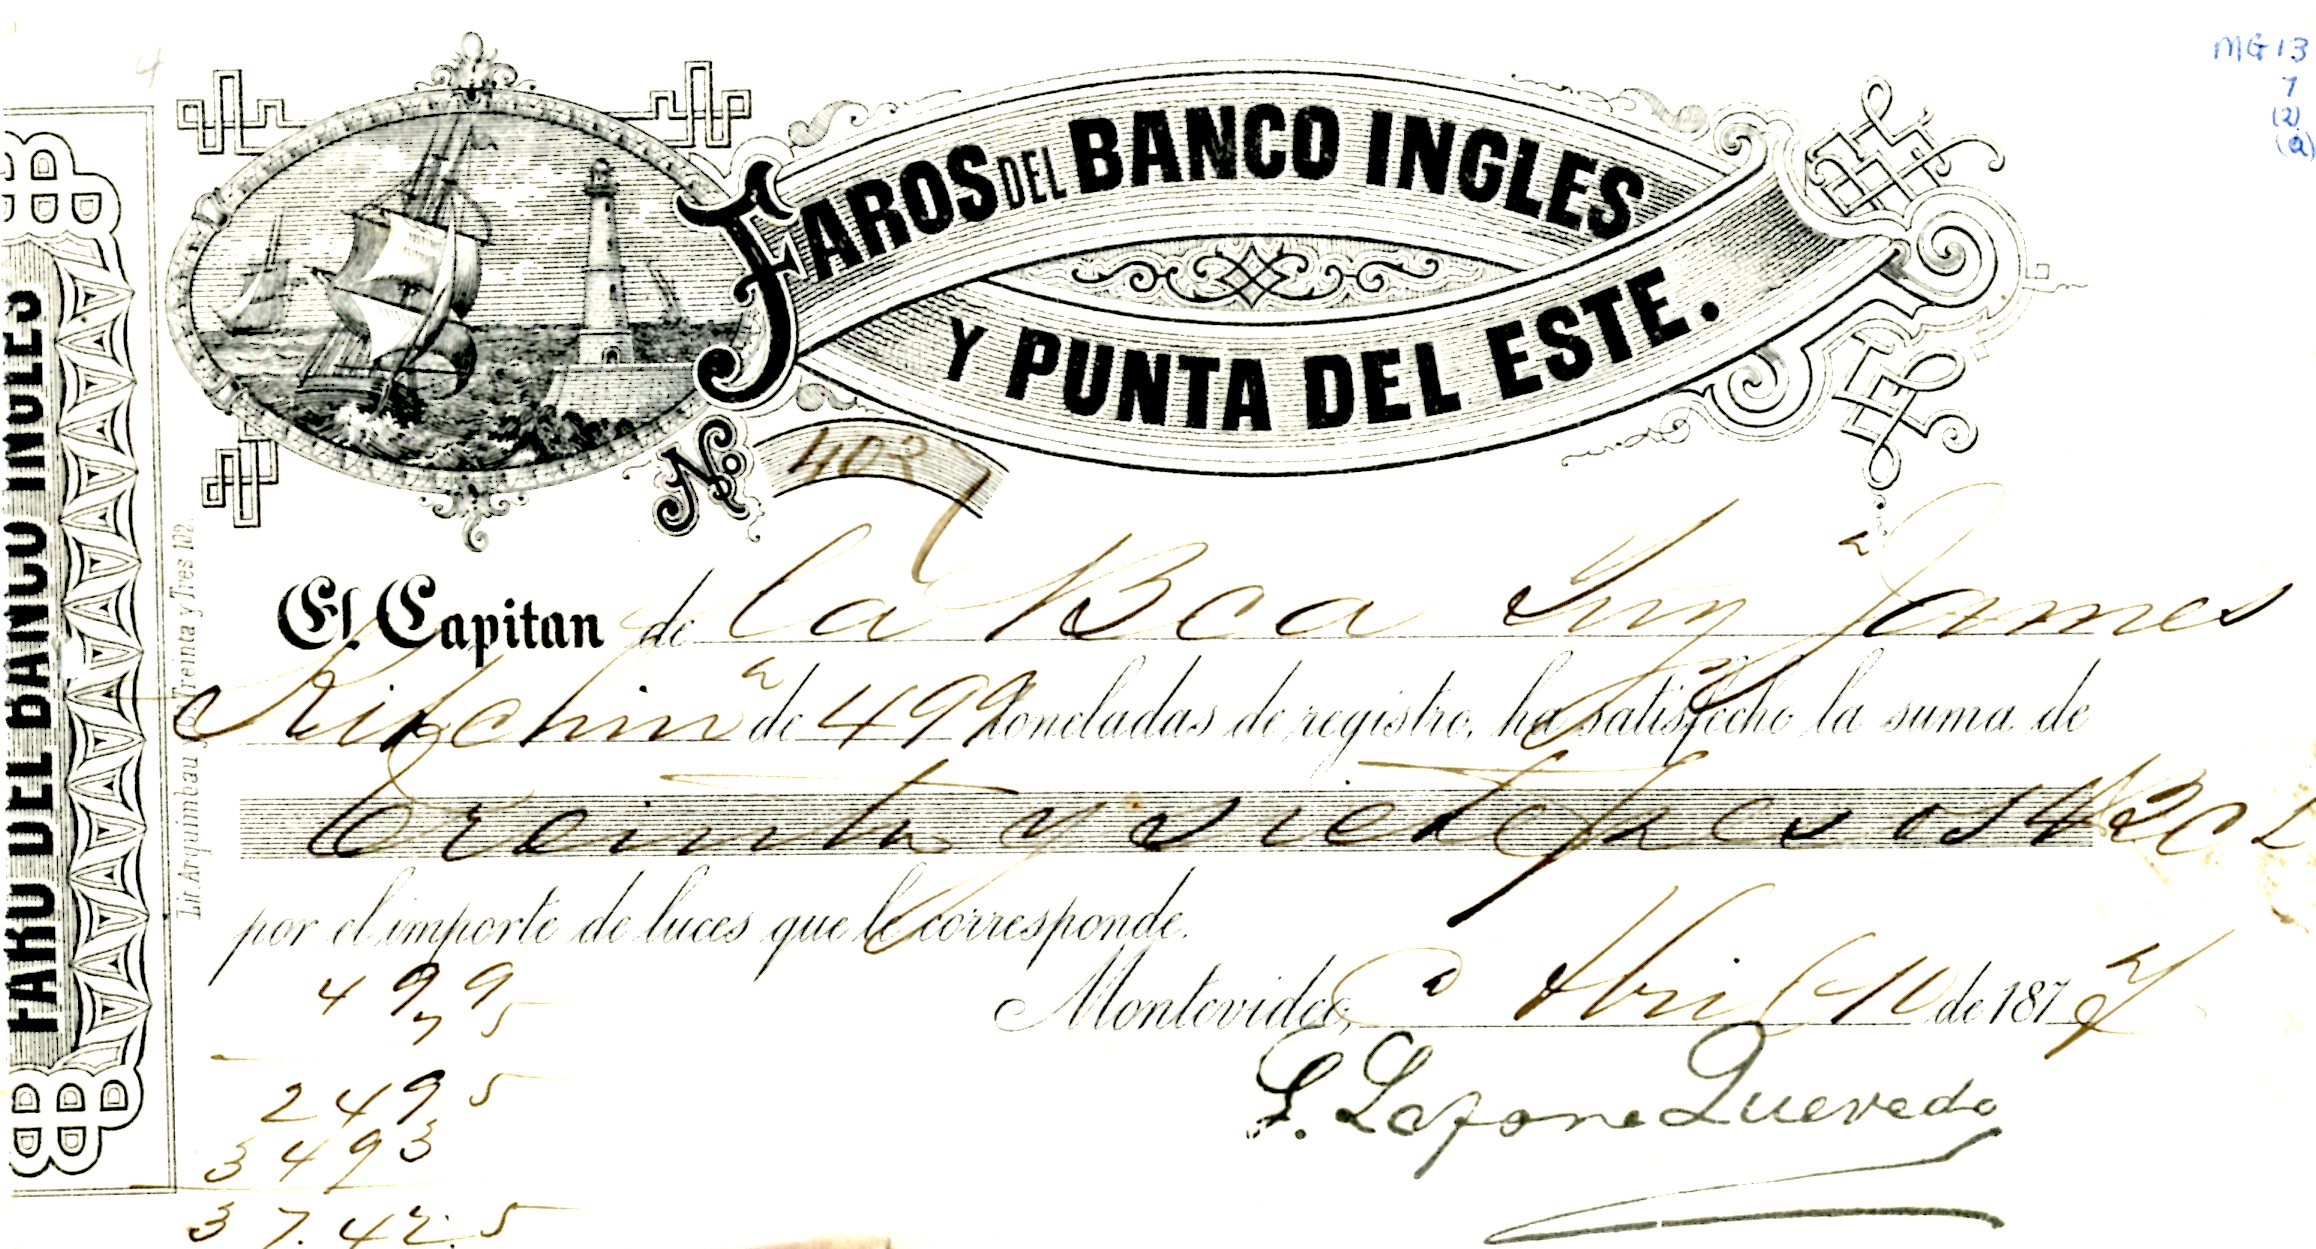 MG 13
7
(2)
(a)
FARO DEL BANCO INGLES
Lit. Arquimbau y Treinta y Tres 102.
FAROS DEL BANCO INGLES
Y PUNTA DEL ESTE.
No 4037
El Capitan de la Bca Ing "James
Kitchin" de 499 toneladas de registro, ha satisfecho la suma de
Treinta y siete pesos 42 c
por el importe de luces que le corresponde.
Montevideo, Abril 10 de 1877
S. Lafone Quevedo
499
75
2495
3493
37.42.5